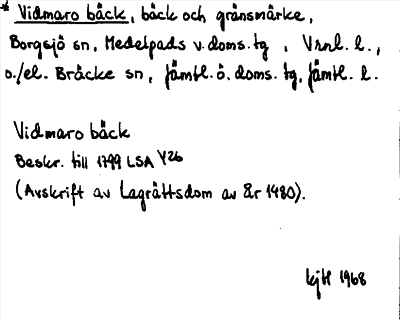 * Vidmaro bäck, bäck och gränsmärke,
Borgsjö sn, Medelpads v. doms. tg, Vrnl. l.,
o./el. Bräcke sn, Jämtl. ö. doms. tg, Jämtl. l.
Vidmaro bäck
Beskr. till 1799 LSA Y26
(Avskrift av Lagrättsdom av år 1480).
kjH 1968